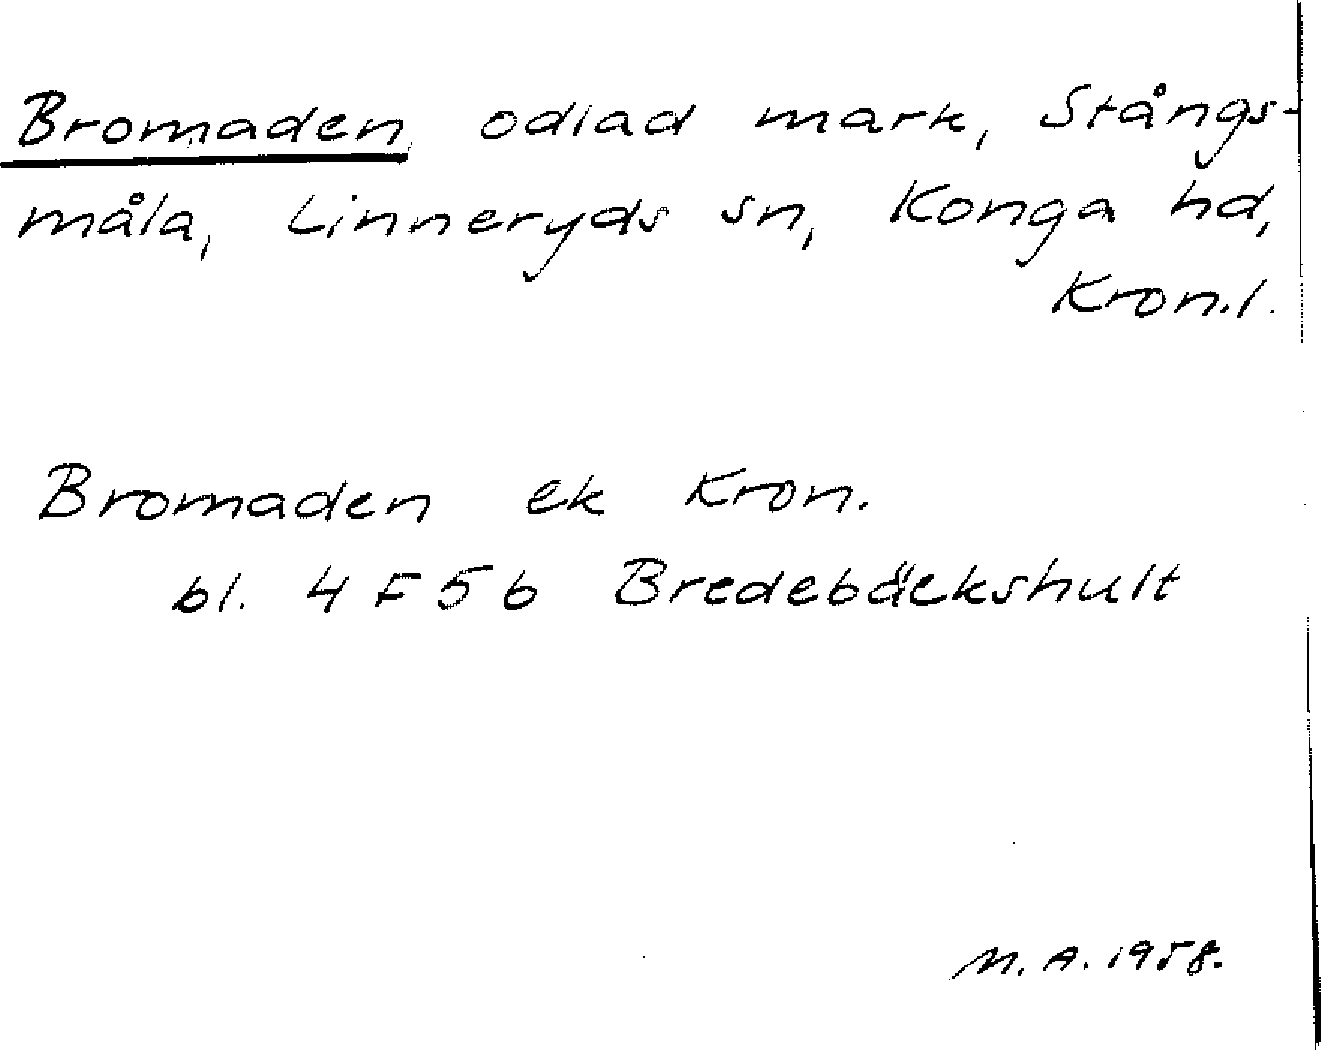 Bromaden, odlad mark, Stångs-
måla, Linneryds sn, Konga hd,
Kron.l.
Bromaden ek Kron.
bl. 4 F 5 b Bredebäckshult
M. A. 1958.